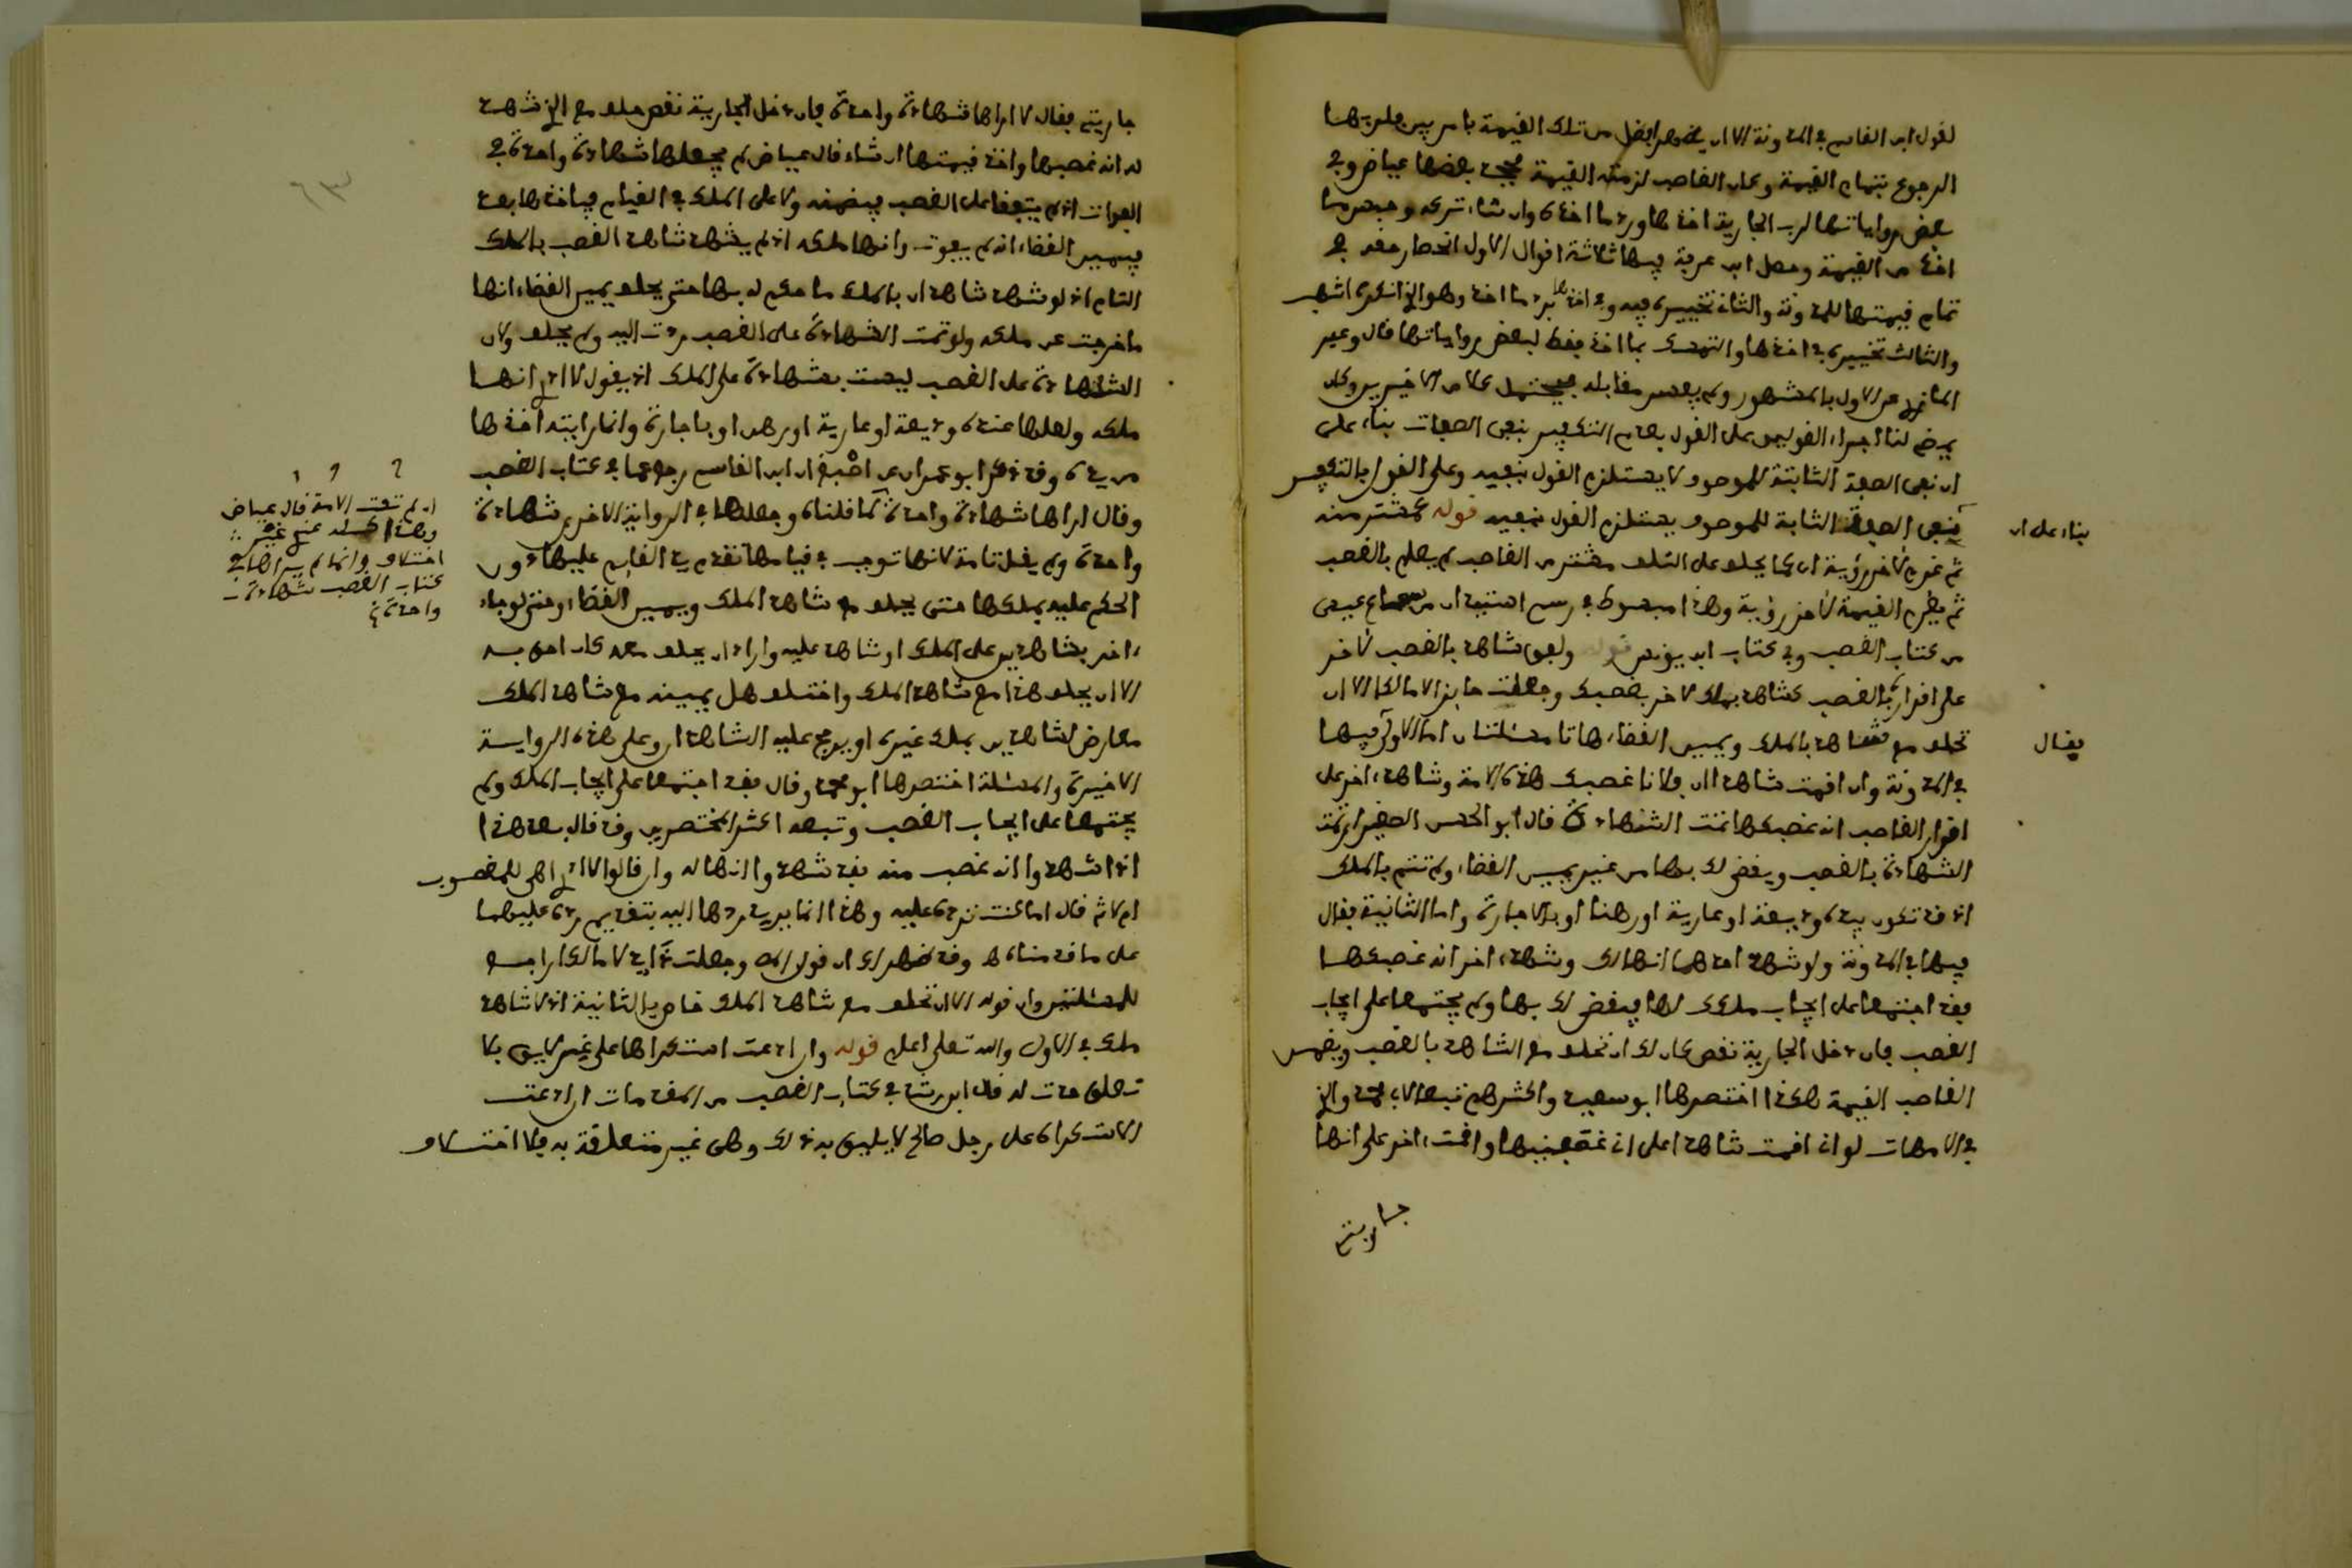 لقول ابن القاسم في المدونة الا ان يظهر افضل من تلك القيمة بامر بين فلربها
الرجوع بتمام القيمة وكان الغاصب لزمته القيمة فجحد بعضها عياض وفي
بعض رواياتها لرب الجارية اخذها ورد ما اخذه وان شاء تركه وحبس ما
اخذ من القيمة وحصل ابن عرفة فيها ثلاثة اقوال الاول انحصار حقه في
تمام قيمتها للمدونة والثاني تخييره فيه وفي اخذها برد ما اخذ وهو الذي انكره اشهب
والثالث تخييره في اخذها والتمسك بما اخذ فقط لبعض رواياتها قال وعبر
المازري عن الاول بالمشهور ولم يفسر مقابله فيحتمل كلا من الاخيرين وكان
يمضي لنا اجراء القولين على القول بعدم التكفير بنفي الصفات بناء على
ان نفي الصفة الثابتة للموصوف لا يستلزم القول بنفيه وعلى القول بالتكفير
بناء على ان
نفي الصفة الثابتة للموصوف يستلزم القول بنفيه قوله كمشتر منه
ثم غرم لآخر رؤية اي كما يحلف على التلف مشتر من الغاصب لم يعلم بالغصب
ثم يغرم القيمة لآخر رؤية وهذا مبسوط في رسم استيذان من سماع عيسى
من كتاب الغصب وفي كتاب ابن يونس قوله ولفق شاهد بالغصب لآخر
على اقراره بالغصب كشاهد بملك لآخر بغصبك وجعلت حائزا لا مالكا الا ان
تحلف مع شاهد بالملك ويمين القضاء هاتا مسئلتان اما الاولى فيها
فقال
في المدونة وان اقمت شاهدا ان فلانا غصبك هذه الامة وشاهدا آخر على
اقرار الغاصب انه غصبكها تمت الشهادة قال ابو الحسن الصغير اي تمت
الشهادة بالغصب ويقضى لك بها من غير يمين القضاء ولم تتم بالملك
اذ قد تكون بيده وديعة او عارية او رهنا او بالاجارة واما الثانية فقال
فيها في المدونة ولو شهد احدهما انها لك وشهد آخر انه غصبكها
فقد اجتمعا على ايجاب ملكك لها فيقضى لك بها ولم يجتمعا على ايجاب
الغصب فان دخل الجارية نقص كان لك ان تحلف مع الشاهد بالغصب ويضمن
الغاصب القيمة هكذا اختصرها ابو سعيد واكثرهم تبعا لابي محمد والذي
في الامهات لو اني اقمت شاهدا على انه غصبنيها واقمت آخر على انها
جاريتي
جاريتي فقال لا اراها شهادة واحدة فان دخل الجارية نقص حلف مع الذي شهد
له انه غصبها واخذ قيمتها ان شاء قال عياض لم يجعلها شهادة واحدة في
الفوات اذ لم يتفقا على الغصب فيضمنه ولا على الملك في القيام فياخذها بعد
يمين القضاء انه لم يفوت وانها ملكه اذ لم يشهد شاهد الغصب بالملك
التام اذ لو شهد شاهدان بالملك ما حكم له بها حتى يحلف يمين القضاء انها
ما خرجت عن ملكه ولو تمت الشهادة على الغصب ردت اليه ولم يحلف ولان
الشهادة على الغصب ليست بشهادة على الملك اذ يقول لا ادري انها
ملكه ولعلها عنده وديعة او عارية او رهن او باجارة وانما رايته اخذها
من يده وقد ذكر ابو عمران عن اصبغ ان ابن القاسم رجع عما في كتاب الغصب
وقال اراها شهادة واحدة كما قلناه وجعلها في الرواية الاخرى شهادة
واحدة ولم يقل تامة لانها توجب في قيامها تقدم يد القائم عليها دون
ان لم تفت الامة قال عياض
وهذا كله عند غير
اختلاف وانما لم يرها في
كتاب الغصب شهادة
واحدة
الحكم عليه بملكها حتى يحلف مع شاهد الملك ويمين القضاء وحتى لو جاء
آخر بشاهدين على الملك او شاهد عليه واراد ان يحلف معه كان احق به
الا ان يحلف هذا مع شاهد الملك واختلف هل يمينه مع شاهد الملك
معارض لشاهدين بملك غيره او يرجح عليه الشاهدان وعلى هذه الرواية
الاخيرة والمسئلة اختصرها ابو محمد وقال فقد اجتمعا على ايجاب الملك ولم
يجتمعا على ايجاب الغصب وتبعه اكثر المختصرين وقد قال بعد هذا
اذا شهدوا انه غصب منه فقد شهدوا انها له وان قالوا لا ندري اهي للمغصوب
ام لا ثم قال اما كنت تردها عليه وهذا انما يريد ردها اليه بتقديم يده عليها
على ما قدمناه وقد ظهر لك ان قول المص وجعلت ذا يد لا مالكا راجع
للمسئلتين وان قوله الا ان تحلف مع شاهد الملك خاص بالثانية اذ لا شاهد
ملك في الاولى والله تعلى اعلم قوله وان ادعت استكراها على غير لايق بلا
تعلق حدت له قال ابن رشد في كتاب الغصب من المقدمات ان ادعت
الاستكراه على رجل صالح لا يليق به ذلك وهي غير متعلقة به فلا اختلاف